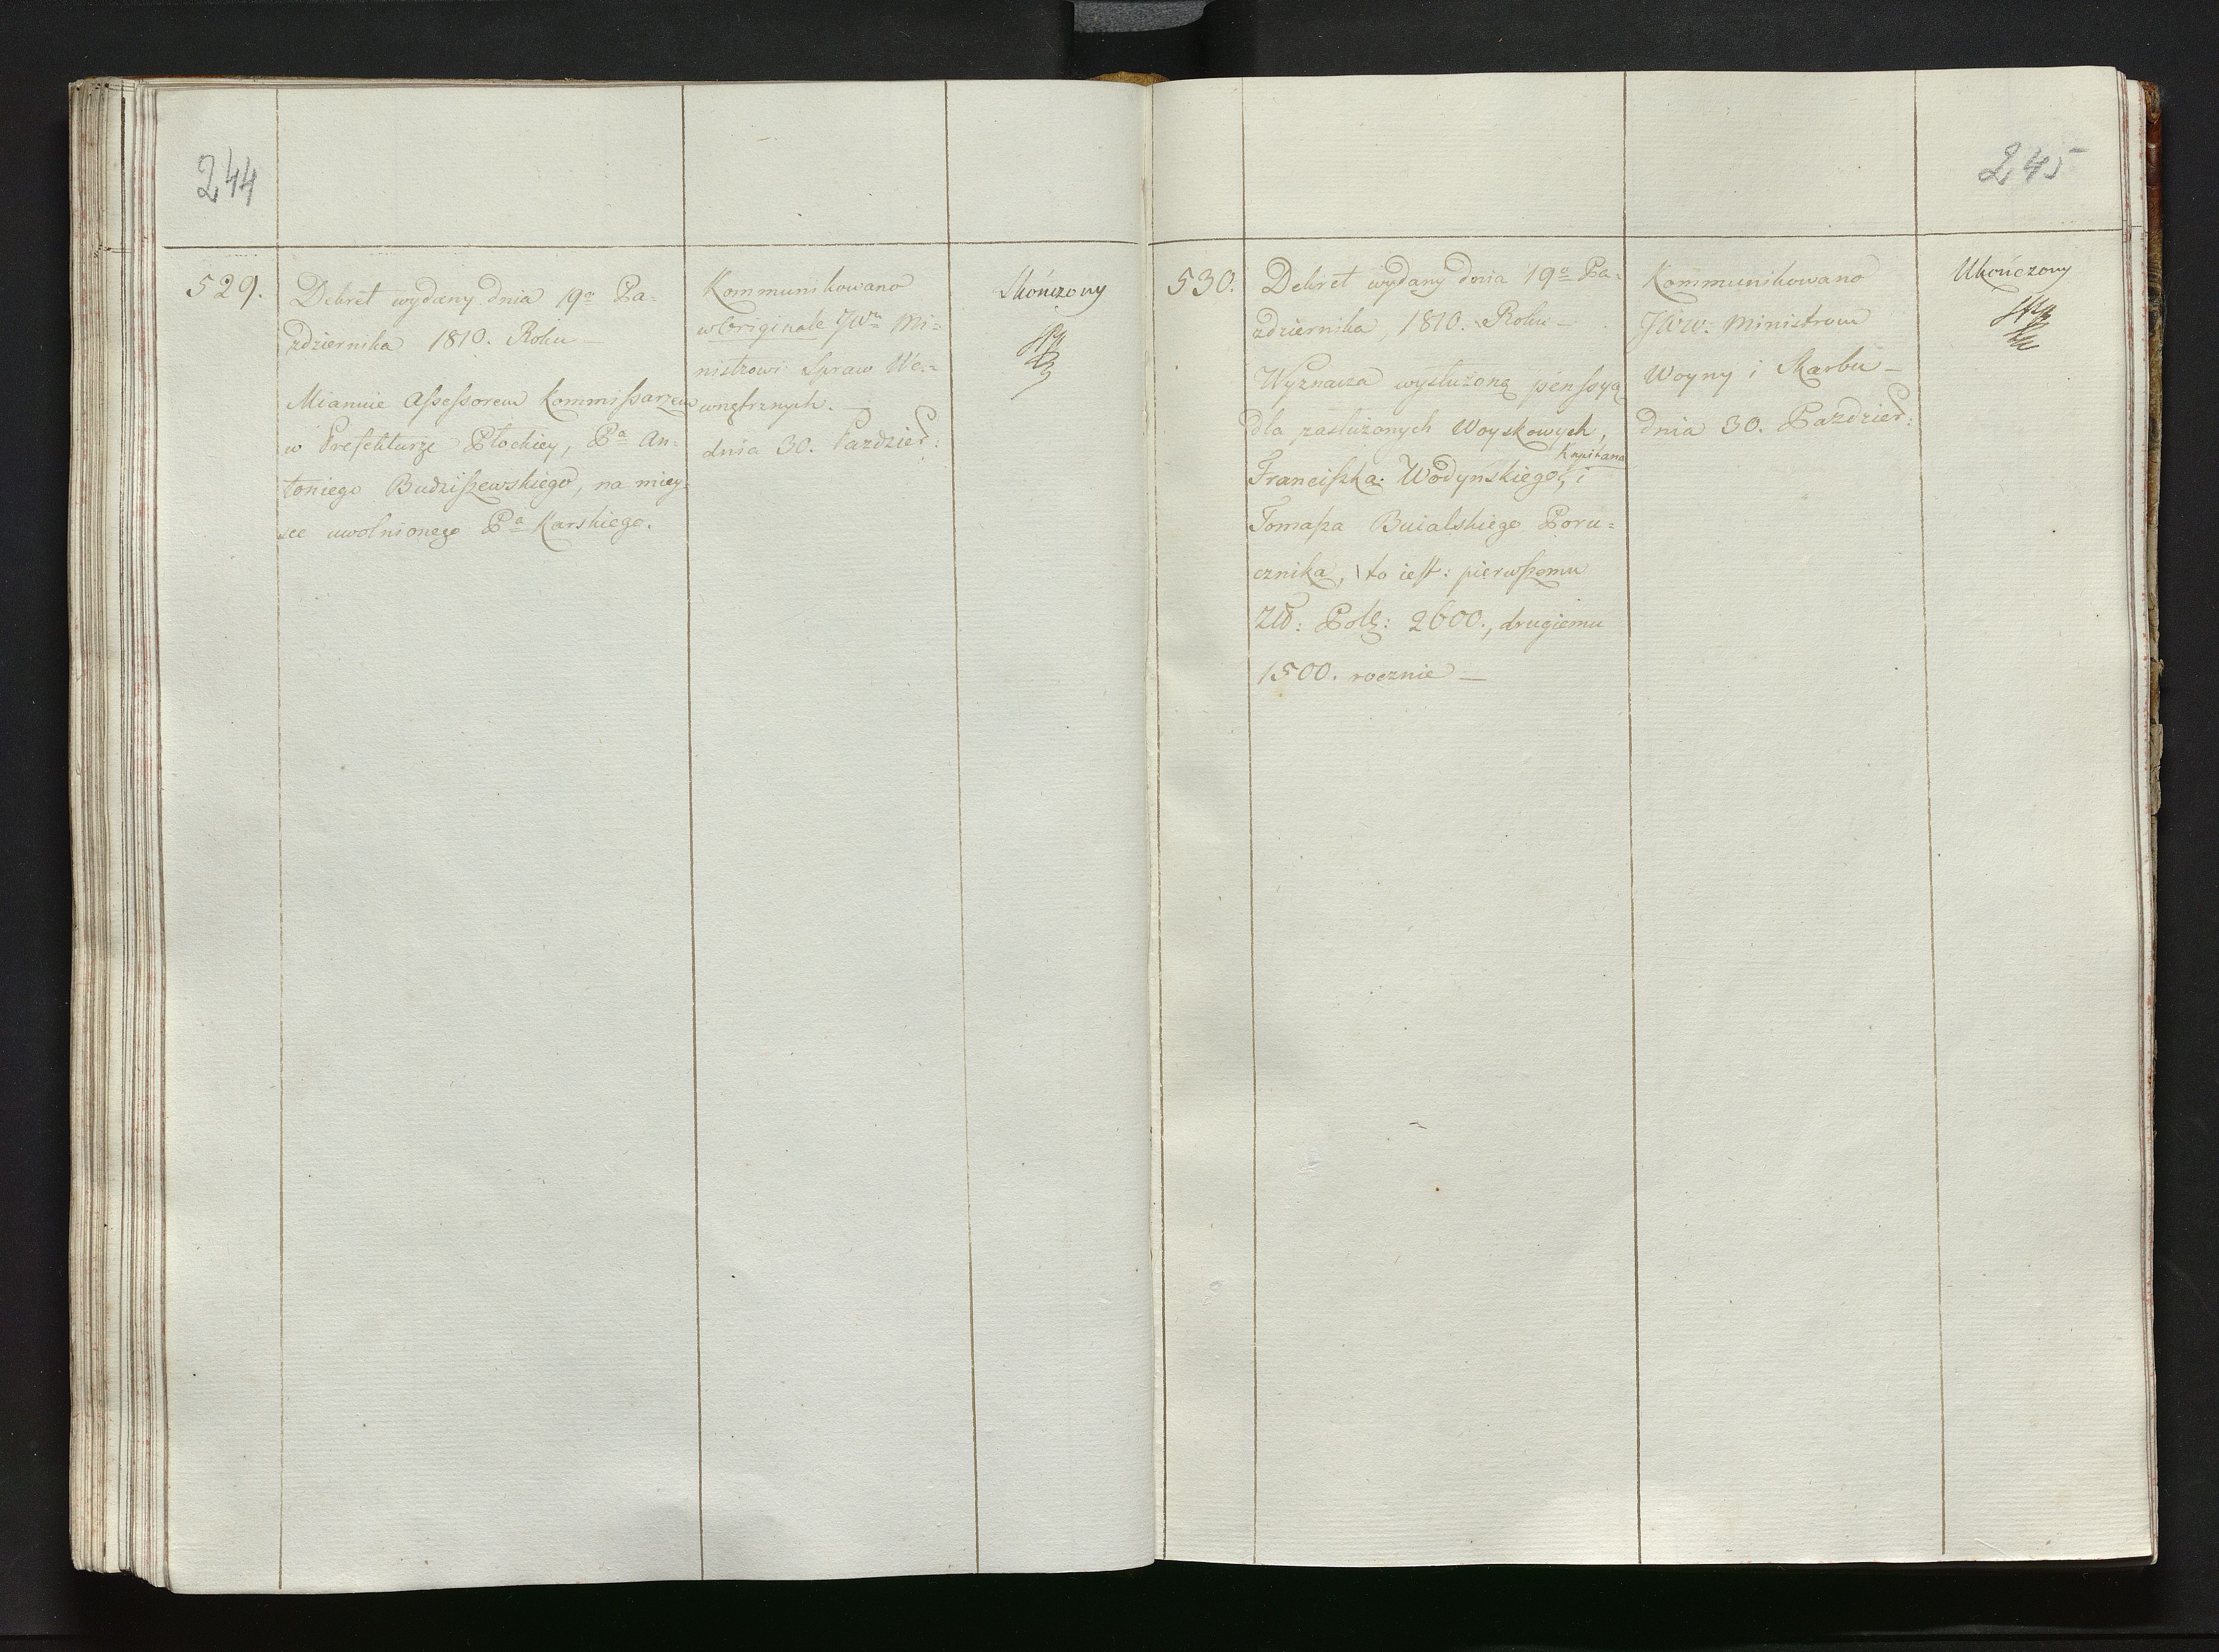 244
529.
Dekret wydany dnia 19º Pa-
zdziernika 1810. Roku —
Mianuie Assessorem Kommissarzem
w Prefekturze Płockiey, Pª An-
toniego Budziszewskiego, na miey-
sce uwolnionego Pª Karskiego.
Kommunikowano
w Originale JWu Mi=
nistrowi Spraw We.=
wnętrznych. —
dnia 30. Paździer:
Skończony
245
530.
Dekret wydany dnia 19º Pa-
zdziernika, 1810. Roku —
Wyznacza wysłużoną penssyą
dla zasłużonych Woyskowych,
Kapitana
Franciszka Wodyńskiego, i
Tomasza Buialskiego Poru=
cznika, to iest: pierwszemu
Zł: Pols: 2600., drugiemu
1500. rocznie —
Kommunikowano
JWW: Ministrom
Woyny i Skarbu —
dnia 30. Pazdzier:
Ukończony